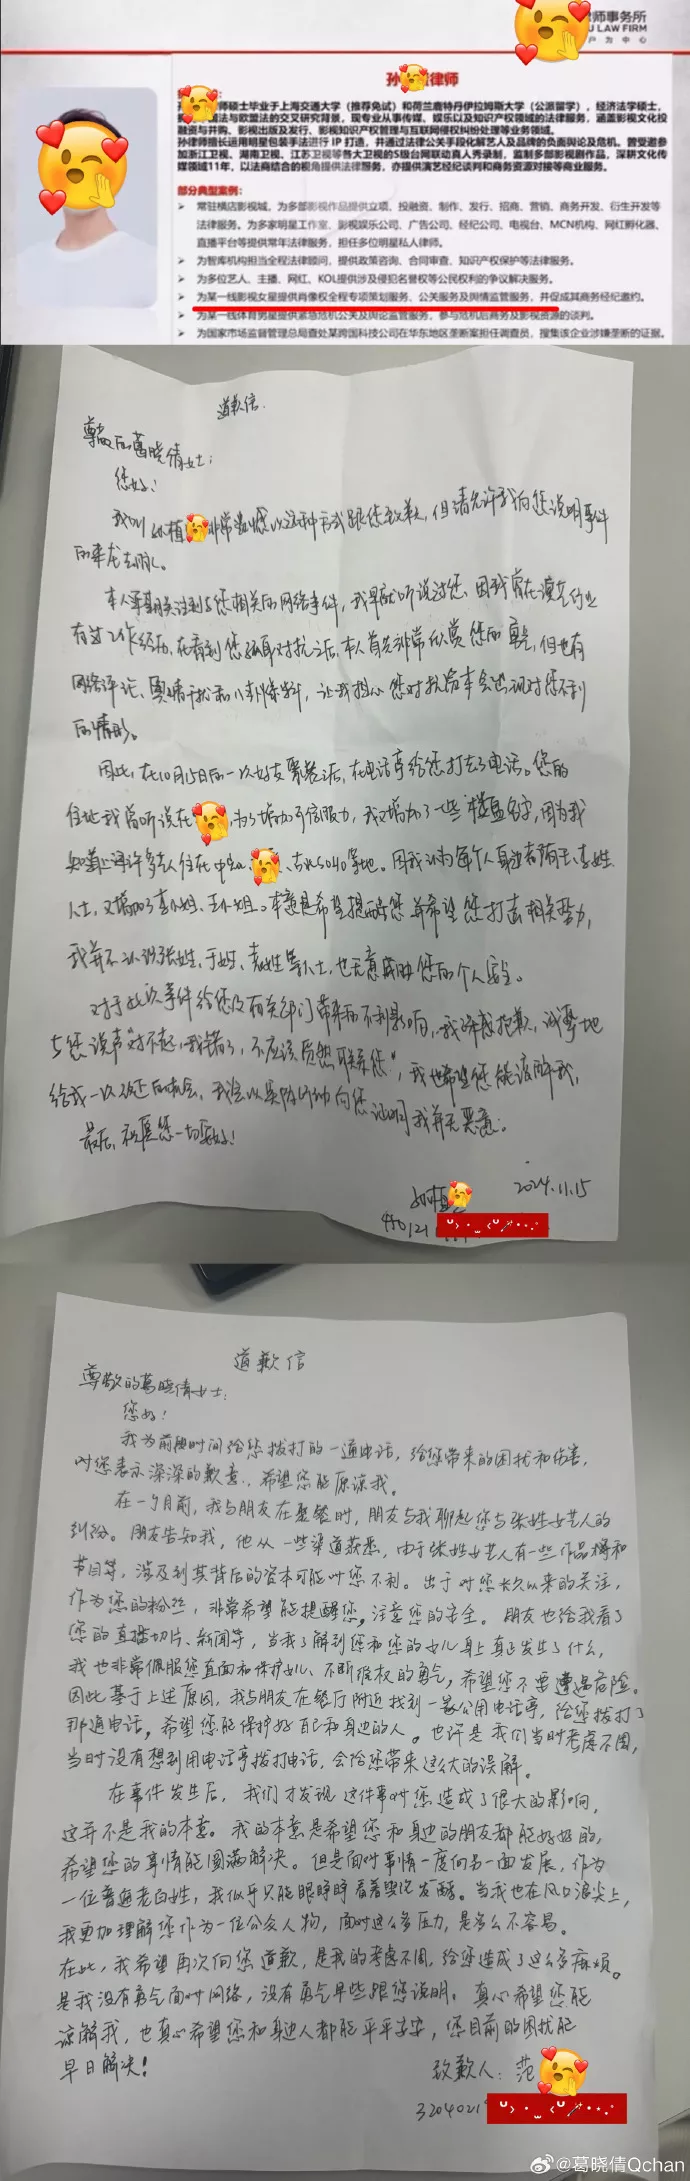 律师事务所
U LAW FIRM
户 为 中 心
孙 律师
孙 师硕士毕业于上海交通大学（推荐免试）和荷兰鹿特丹伊拉姆斯大学（公派留学），经济法学硕士，
法与欧盟法的交叉研究背景，现专业从事传媒、娱乐以及知识产权领域的法律服务，涵盖影视文化投
融资与并购、影视出版及发行、影视知识产权管理与互联网侵权纠纷处理等业务领域。
孙律师擅长运用明星包装手法进行 IP 打造，并通过法律公关手段化解艺人及品牌的负面舆论及危机。曾受邀参
加浙江卫视、湖南卫视、江苏卫视等各大卫视的S级台网联动真人秀录制，监制多部影视剧作品，深耕文化传
媒领域11年，以法商结合的视角提供法律服务，亦提供演艺经纪谈判和商务资源对接等商业服务。
部分典型案例：
常驻横店影视城，为多部影视作品提供立项、投融资、制作、发行、招商、营销、商务开发、衍生开发等
法律服务。为多家明星工作室、影视娱乐公司、广告公司、经纪公司、电视台、MCN机构、网红孵化器、
直播平台等提供常年法律服务，担任多位明星私人律师。
为智库机构担当全程法律顾问，提供政策咨询、合同审查、知识产权保护等法律服务。
为多位艺人、主播、网红、KOL提供涉及侵犯名誉权等公民权利的争议解决服务。
为某一线影视女星提供肖像权全程专项策划服务、公关服务及舆情监管服务，并促成其商务经纪邀约。
为某一线体育男星提供紧急危机公关及舆论监管服务，参与危机后商务及影视资源的谈判。
为国家市场监督管理总局查处某跨国科技公司在华东地区垄断案担任调查员，搜集该企业涉嫌垄断的证据。
道歉信
尊敬的葛晓倩女士：
您好！
我叫孙植 非常遗憾以这种方式跟您致歉，但请允许我向您说明事件
的来龙去脉。
本人早期关注到与您相关的网络事件，我早就听说过您，因我曾在演艺行业
有过工作经历，在看到您孤身对抗之后，本人首先非常欣赏您的勇气，但也有
网络评论、舆情干扰和 ，让我担心您对抗资本会出现对您不利
的情形。
因此，在10月15日的一次好友聚餐之后，在电话亭给您打去了电话。您的
住址我曾听说在 ，为了增加可信服力，我又增加了一些"楼盘名字，因为我
知道 许多艺人住在中 、 、 SOHO等地。因我认为每个人身边都有王、李姓
人士，又增加了李小姐、王小姐。本意是希望提醒您并希望您打击相关势力，
我并不认识张姓、于姓、袁姓等人士，也无意威胁您的个人安全。
对于此次事件给您及有关部门带来的不利影响，我深感抱歉，诚挚地
与您说声"对不起，我错了，不应该贸然联系您"，我也希望您能谅解我，
给我一次改过的机会，我会以实际行动向您证明我并无恶意。
最后，祝愿您一切安好！
孙植
2024.11.15
450121
道歉信
尊敬的葛晓倩女士：
您好！
我为前段时间给您拨打的一通电话，给您带来的困扰和伤害，
对您表示深深的歉意，希望您能原谅我。
在一个月前，我与朋友在聚餐时，朋友与我聊起您与张姓女艺人的
纠纷。朋友告知我，他从一些渠道获悉，由于张姓女艺人有一些作品 和
节目等，涉及到其背后的资本可能对您不利。出于对您长久以来的关注，
作为您的粉丝，非常希望能提醒您，注意您的安全。朋友也给我看了
您的直播切片、新闻等，当我了解到您和您的女儿身上真正发生了什么，
我也非常佩服您直面和保护女儿、不断维权的勇气，希望您不要遭遇危险。
因此基于上述原因，我与朋友在餐厅附近找到一家公用电话亭，给您拨打了
那通电话，希望您能保护好自己和身边的人。也许是我们当时考虑不周，
当时没有想到用电话亭拨打电话，会给您带来这么大的误解。
在事件发生后，我们才发现这件事对您造成了很大的影响，
这并不是我的本意。我的本意是希望您和身边的朋友都能好好的，
希望您的事情能圆满解决。但是面对事情一度向另一面发展，作为
一位普通老百姓，我似乎只能眼睁睁看着舆论发酵。当我也在风口浪尖上，
我更加理解您作为一位公众人物，面对这么多压力，是多么不容易。
在此，我希望再次向您道歉，是我的考虑不周，给您造成了这么多麻烦。
是我没有勇气面对网络，没有勇气早些跟您说明。真心希望您能
谅解我，也真心希望您和身边人都能平平安安，您目前的困扰能
早日解决！
致歉人：范
3204021
@葛晓倩Qchan